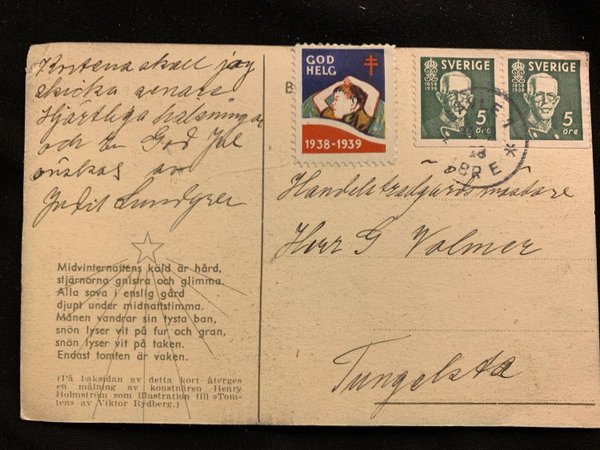 skall jag
skicka senare
Hjärtliga hälsningar
och En God Jul
önskas av
Judit Lundgren
Midvinternattens köld är hård,
stjärnorna gnistra och glimma.
Alla sova i enslig gård
djupt under midnattstimma.
Månen vandrar sin tysta ban,
snön lyser vit på fur och gran,
snön lyser vit på taken.
Endast tomten är vaken.
(På baksidan av detta kort återges
en målning av konstnären Henry
Holmström som illustration till »Tom-
ten» av Viktor Rydberg.)
B
GOD
HELG
1938-1939
SVERIGE
5
öre
SVERIGE
5
öre
Handelsträdgårdsmästare
Herr G Volmer
Tungelsta